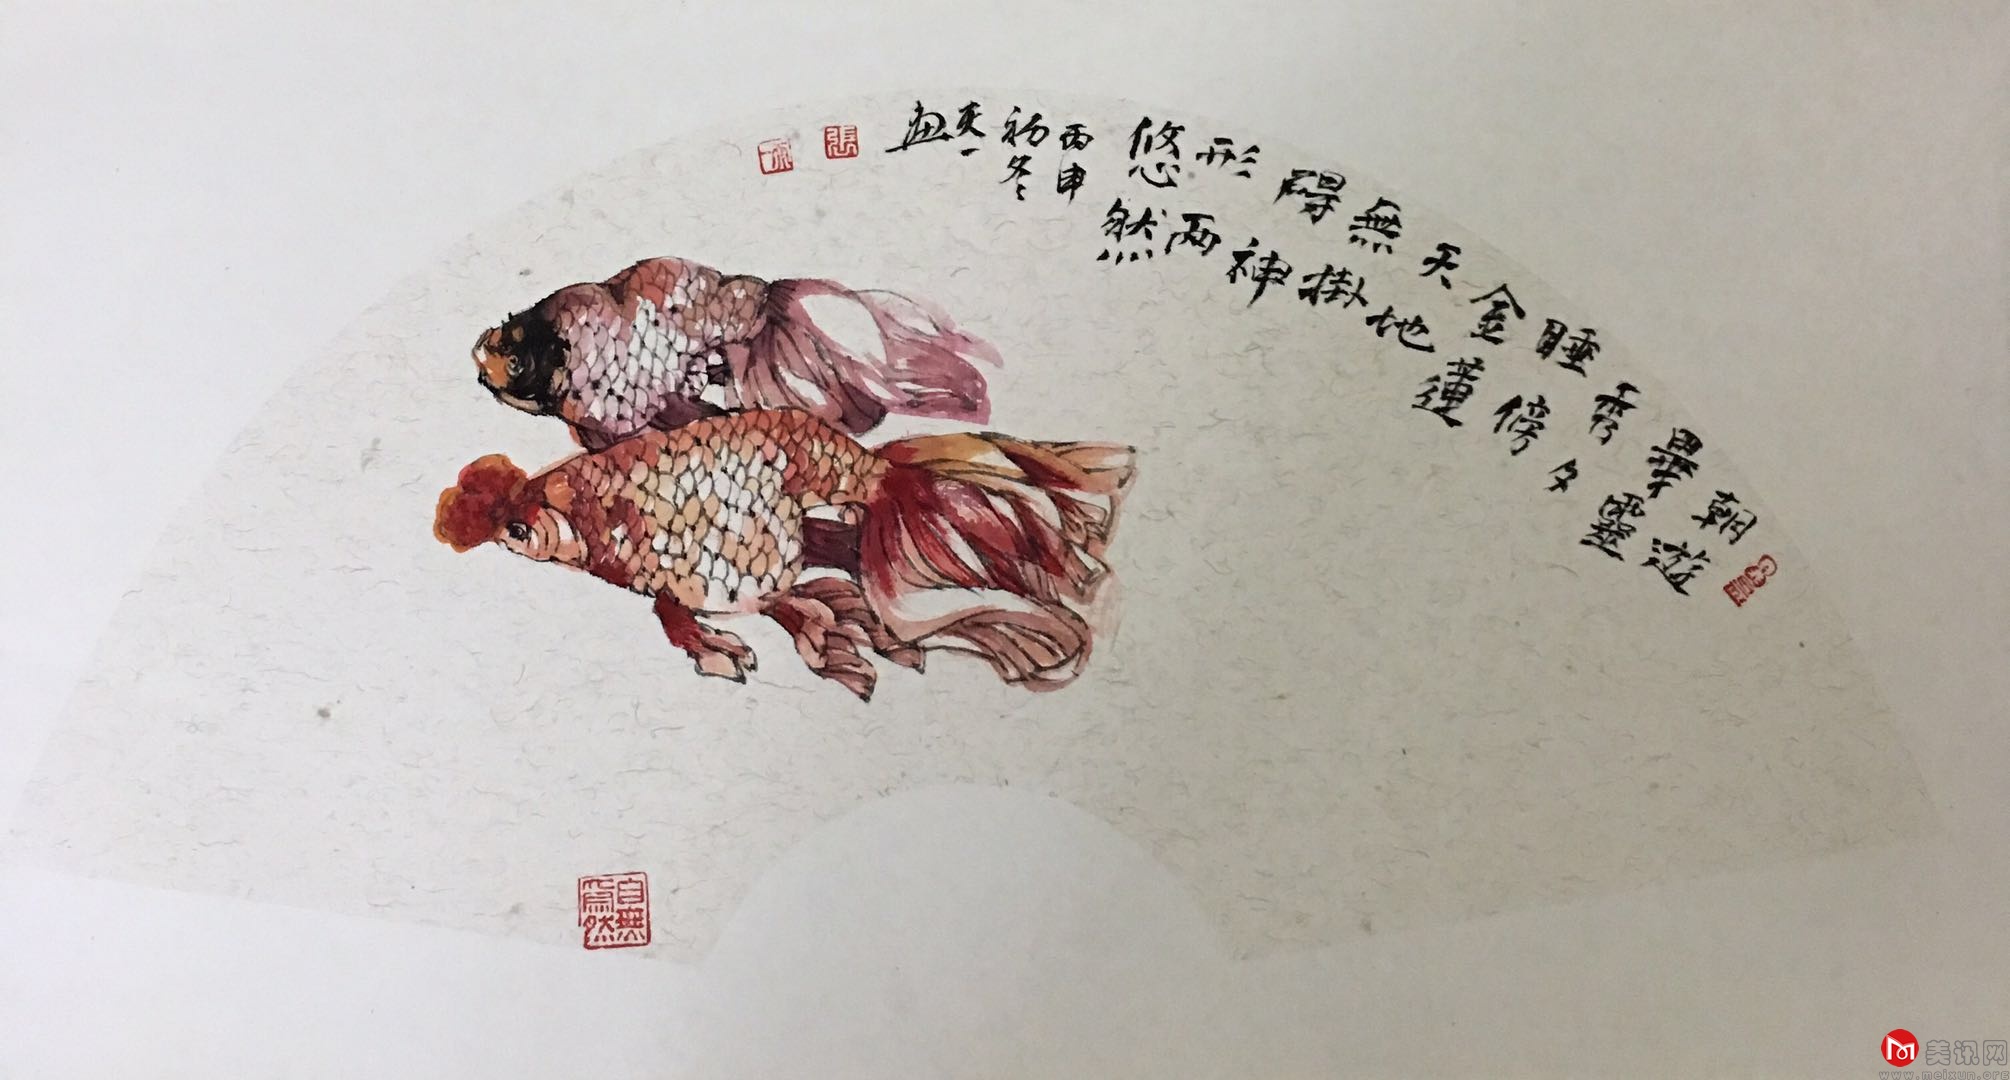 朝遊
秀夕
睡傍
金蓮
天地
無掛
礙神
形兩
悠然
丙申
初冬
天一
画
張
自無
為然
美讯网
www.meixun.org